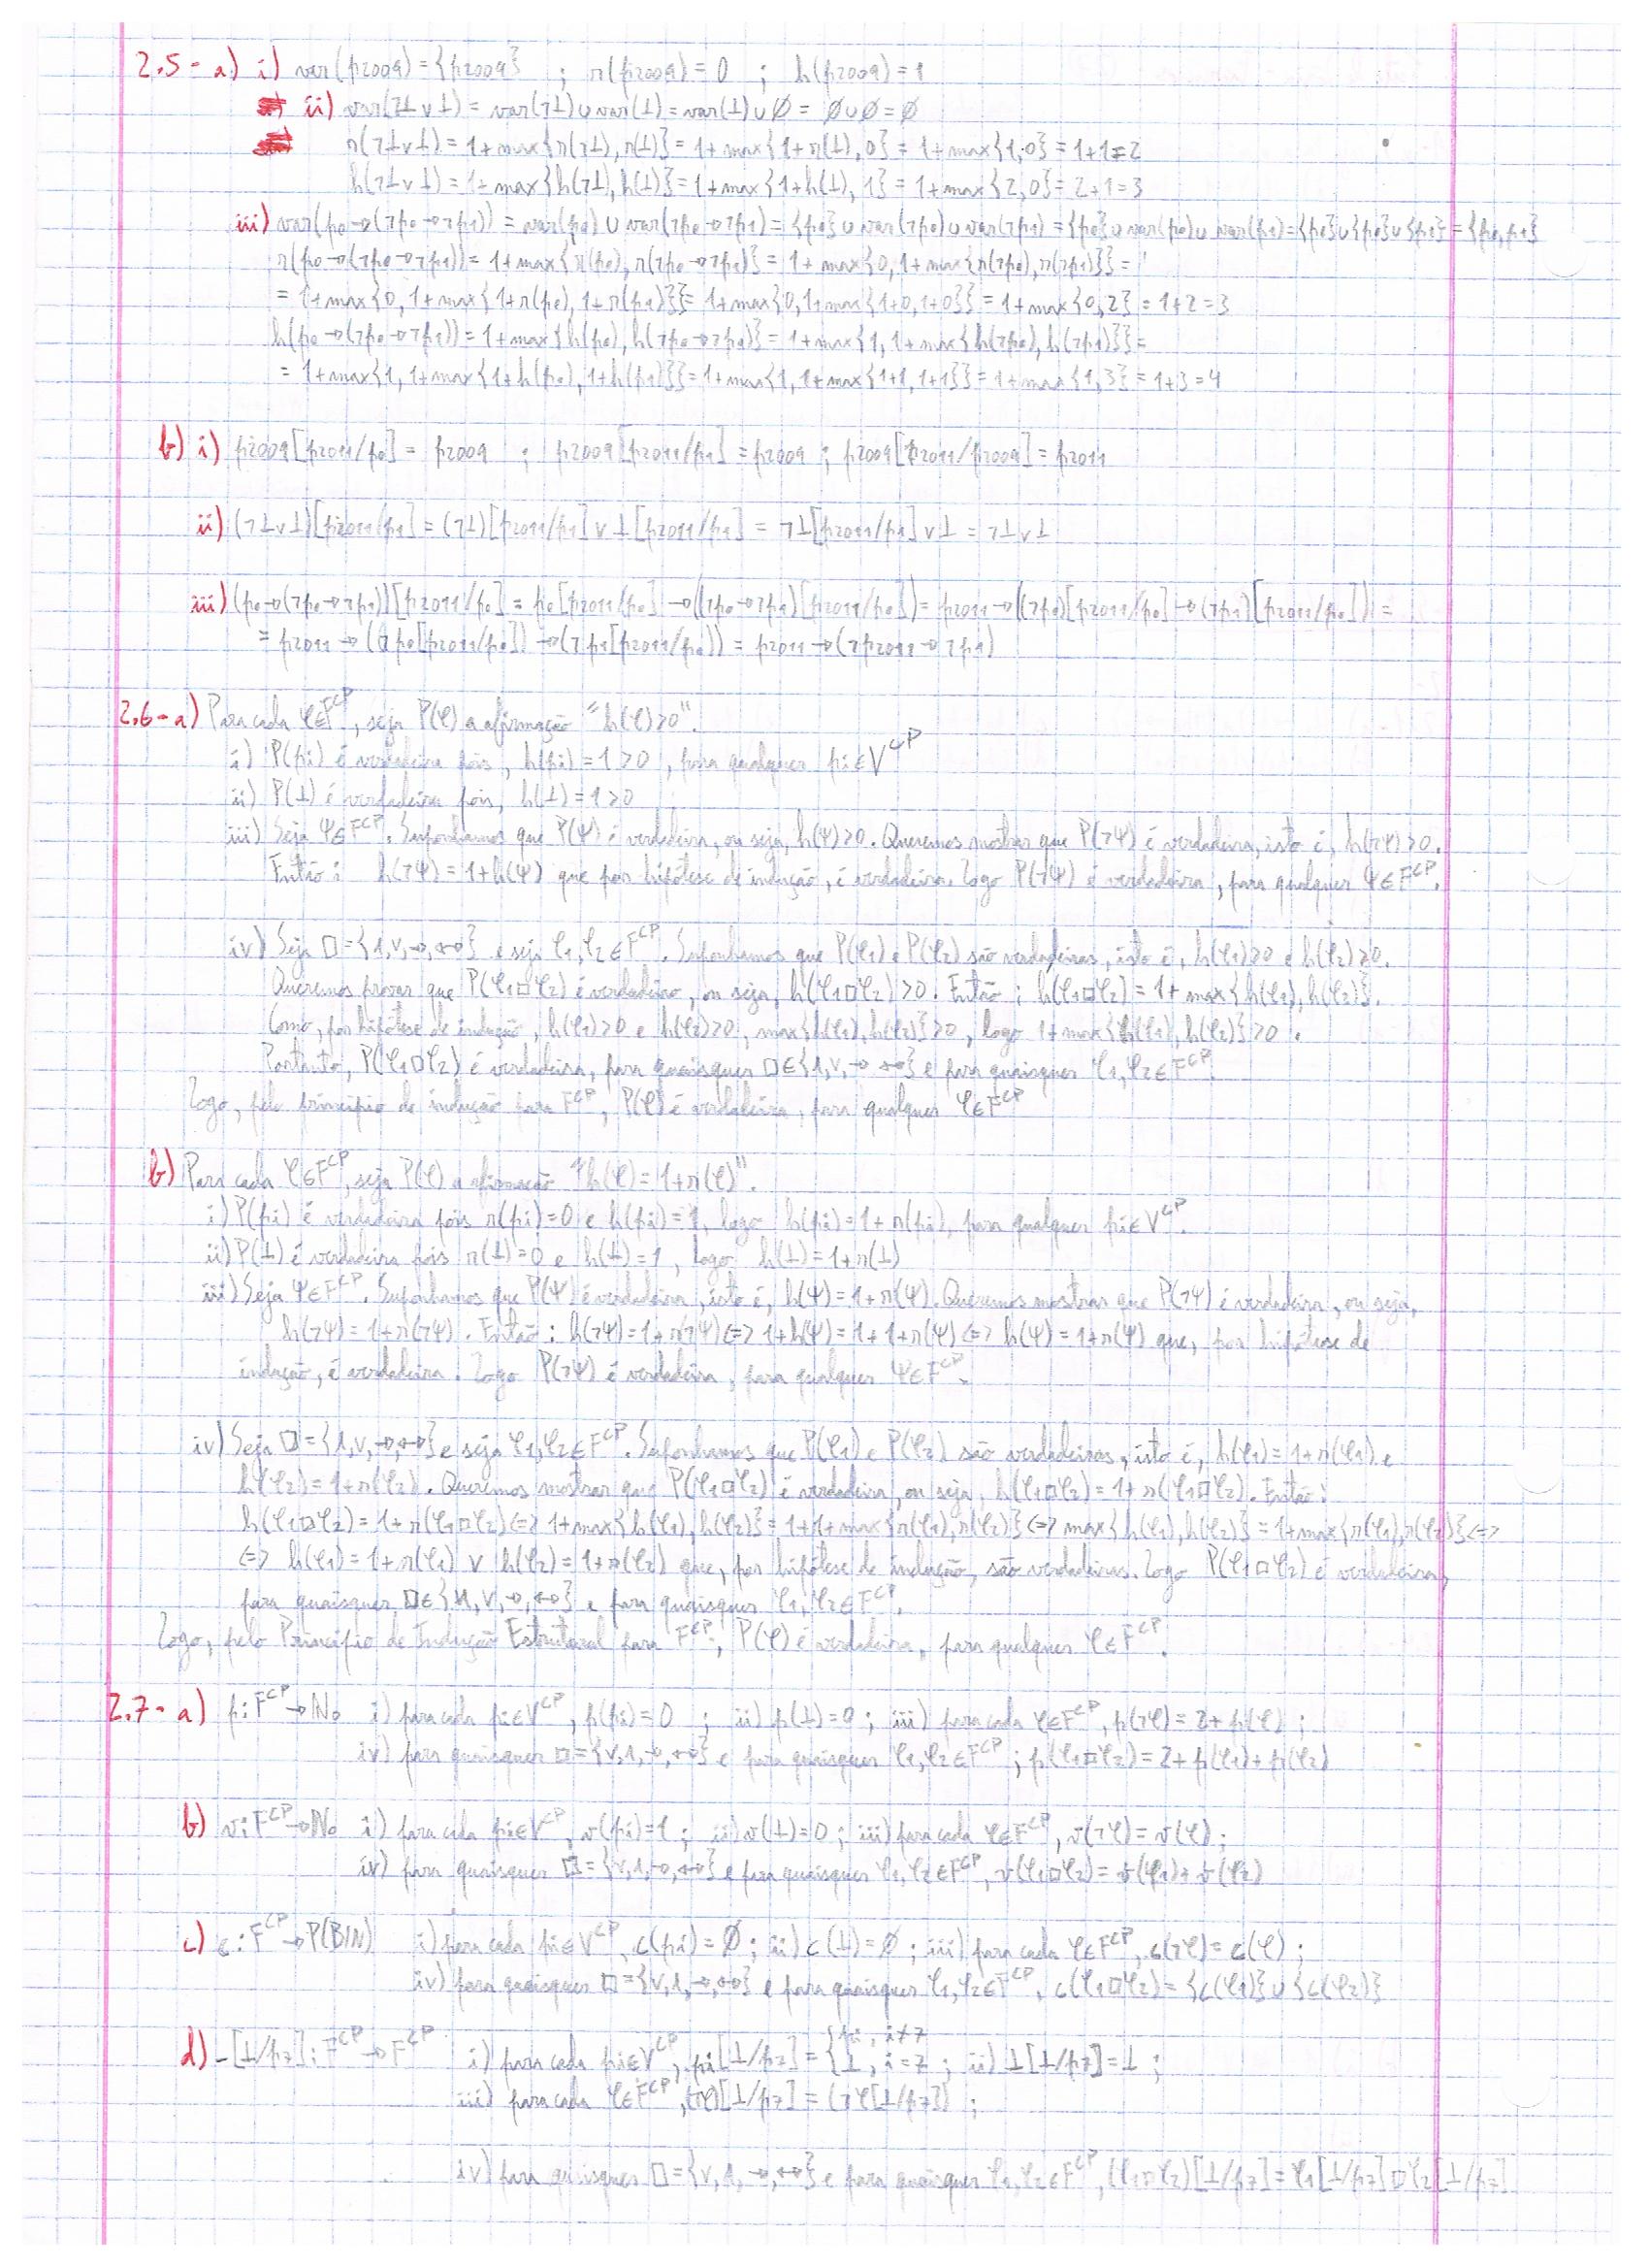 2.5 - a) i) var(p2009) = {p2009} ; r(p2009) = 0 ; h(p2009) = 1
ii) var(¬⊥∨⊥) = var(¬⊥)∪var(⊥) = var(⊥)∪∅ = ∅∪∅ = ∅
r(¬⊥∨⊥) = 1+max{r(¬⊥), r(⊥)} = 1+max{1+r(⊥), 0} = 1+max{1,0} = 1+1=2
h(¬⊥∨⊥) = 1+max{h(¬⊥), h(⊥)} = 1+max{1+h(⊥), 1} = 1+max{2,0} = 2+1=3
iii) var(p0→(¬p0→¬p1)) = var(p0) ∪ var(¬p0→¬p1) = {p0}∪var(¬p0)∪var(¬p1) = {p0}∪var(p0)∪var(p1) = {p0}∪{p0}∪{p1} = {p0,p1}
r(p0→(¬p0→¬p1)) = 1+max{r(p0), r(¬p0→¬p1)} = 1+max{0, 1+max{r(¬p0), r(¬p1)}} =
= 1+max{0, 1+max{1+r(p0), 1+r(p1)}} = 1+max{0, 1+max{1+0, 1+0}} = 1+max{0,2} = 1+2=3
h(p0→(¬p0→¬p1)) = 1+max{h(p0), h(¬p0→¬p1)} = 1+max{1, 1+max{h(¬p0), h(¬p1)}} =
= 1+max{1, 1+max{1+h(p0), 1+h(p1)}} = 1+max{1, 1+max{1+1, 1+1}} = 1+max{1,3} = 1+3=4
b) i) p2009[p2011/p0] = p2009 ; p2009[p2011/p1] = p2009 ; p2009[p2011/p2009] = p2011
ii) (¬⊥∨⊥)[p2011/p1] = (¬⊥)[p2011/p1] ∨ ⊥[p2011/p1] = ¬⊥[p2011/p1] ∨⊥ = ¬⊥∨⊥
iii) (p0→(¬p0→¬p1))[p2011/p0] = p0[p2011/p0] →((¬p0→¬p1)[p2011/p0]) = p2011→((¬p0)[p2011/p0]→(¬p1)[p2011/p0]) =
= p2011→((¬p0[p2011/p0])→(¬p1[p2011/p0])) = p2011→(¬p2011→¬p1)
2.6 - a) Para cada φ∈F^CP, seja P(φ) a afirmação "h(φ)>0".
i) P(pi) é verdadeira pois, h(pi) = 1>0, para qualquer pi∈V^CP
ii) P(⊥) é verdadeira pois, h(⊥)=1>0
iii) Seja ψ∈F^CP. Suponhamos que P(ψ) é verdadeira, ou seja, h(ψ)>0. Queremos mostrar que P(¬ψ) é verdadeira, isto é, h(¬ψ)>0.
Então: h(¬ψ) = 1+h(ψ) que por hipótese de indução, é verdadeira. Logo P(¬ψ) é verdadeira, para qualquer ψ∈F^CP.
iv) Seja □={∧,∨,→,↔} e seja φ1,φ2∈F^CP. Suponhamos que P(φ1) e P(φ2) são verdadeiras, isto é, h(φ1)>0 e h(φ2)>0.
Queremos provar que P(φ1□φ2) é verdadeira, ou seja, h(φ1□φ2)>0. Então: h(φ1□φ2) = 1+max{h(φ1), h(φ2)}.
Como, por hipótese de indução, h(φ1)>0 e h(φ2)>0, max{h(φ1), h(φ2)}>0, logo 1+max{h(φ1), h(φ2)}>0.
Portanto, P(φ1□φ2) é verdadeira, para quaisquer □∈{∧,∨,→,↔} e para quaisquer φ1,φ2∈F^CP.
Logo, pelo princípio de indução para F^CP, P(φ) é verdadeira, para qualquer φ∈F^CP
b) Para cada φ∈F^CP, seja P(φ) a afirmação "h(φ)=1+r(φ)".
i) P(pi) é verdadeira pois r(pi)=0 e h(pi)=1, logo h(pi)=1+r(pi), para qualquer pi∈V^CP.
ii) P(⊥) é verdadeira pois r(⊥)=0 e h(⊥)=1, logo h(⊥)=1+r(⊥)
iii) Seja ψ∈F^CP. Suponhamos que P(ψ) é verdadeira, isto é, h(ψ)=1+r(ψ). Queremos mostrar que P(¬ψ) é verdadeira, ou seja,
h(¬ψ)=1+r(¬ψ). Então: h(¬ψ)=1+r(¬ψ) <=> 1+h(ψ)=1+1+r(ψ) <=> h(ψ)=1+r(ψ) que, por hipótese de
indução, é verdadeira. Logo P(¬ψ) é verdadeira, para qualquer ψ∈F^CP.
iv) Seja □={∧,∨,→,↔} e seja φ1,φ2∈F^CP. Suponhamos que P(φ1) e P(φ2) são verdadeiras, isto é, h(φ1)=1+r(φ1) e
h(φ2)=1+r(φ2). Queremos mostrar que P(φ1□φ2) é verdadeira, ou seja, h(φ1□φ2)=1+r(φ1□φ2). Então:
h(φ1□φ2)=1+r(φ1□φ2) <=> 1+max{h(φ1), h(φ2)} = 1+1+max{r(φ1), r(φ2)} <=> max{h(φ1), h(φ2)} = 1+max{r(φ1), r(φ2)} <=>
<=> h(φ1)=1+r(φ1) ∨ h(φ2)=1+r(φ2) que, por hipótese de indução, são verdadeiras. Logo P(φ1□φ2) é verdadeira,
para quaisquer □∈{∧,∨,→,↔} e para quaisquer φ1,φ2∈F^CP.
Logo, pelo Princípio de Indução Estrutural para F^CP, P(φ) é verdadeira, para qualquer φ∈F^CP.
2.7 - a) p:F^CP→N0 i) para cada pi∈V^CP, p(pi)=0 ; ii) p(⊥)=0 ; iii) para cada φ∈F^CP, p(¬φ)=2+p(φ) ;
iv) para quaisquer □={∨,∧,→,↔} e para quaisquer φ1,φ2∈F^CP ; p(φ1□φ2)=2+p(φ1)+p(φ2)
b) v:F^CP→N0 i) para cada pi∈V^CP, v(pi)=1 ; ii) v(⊥)=0 ; iii) para cada φ∈F^CP, v(¬φ)=v(φ) ;
iv) para quaisquer □={∨,∧,→,↔} e para quaisquer φ1,φ2∈F^CP, v(φ1□φ2)=v(φ1)+v(φ2)
c) c:F^CP→P(BIN) i) para cada pi∈V^CP, c(pi)=∅ ; ii) c(⊥)=∅ ; iii) para cada φ∈F^CP, c(¬φ)=c(φ) ;
iv) para quaisquer □={∨,∧,→,↔} e para quaisquer φ1,φ2∈F^CP, c(φ1□φ2)={c(φ1)}∪{c(φ2)}
d) -[⊥/p7]:F^CP→F^CP i) para cada pi∈V^CP, pi[⊥/p7]={pi, i≠7
⊥, i=7 ; ii) ⊥[⊥/p7]=⊥ ;
iii) para cada φ∈F^CP, (¬φ)[⊥/p7]=(¬φ[⊥/p7]) ;
iv) para quaisquer □={∨,∧,→,↔} e para quaisquer φ1,φ2∈F^CP, (φ1□φ2)[⊥/p7]=φ1[⊥/p7]□φ2[⊥/p7]